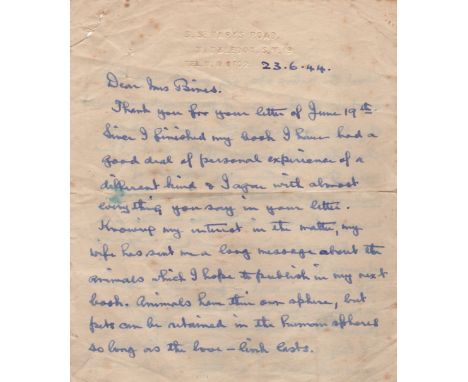 ROAD
23.6.44.
Dear Mrs
Thank you for your letter of June 19th
Since I finished my book I have had a
good deal of personal experience of a
different kind & I agree with almost
everything you say in your letter.
Knowing my interest in the matter, my
wife has sent me a long message about the
animals which I hope to publish in my next
book. Animals have their own sphere, but
pets can be retained in the human spheres
so long as the love-link lasts.